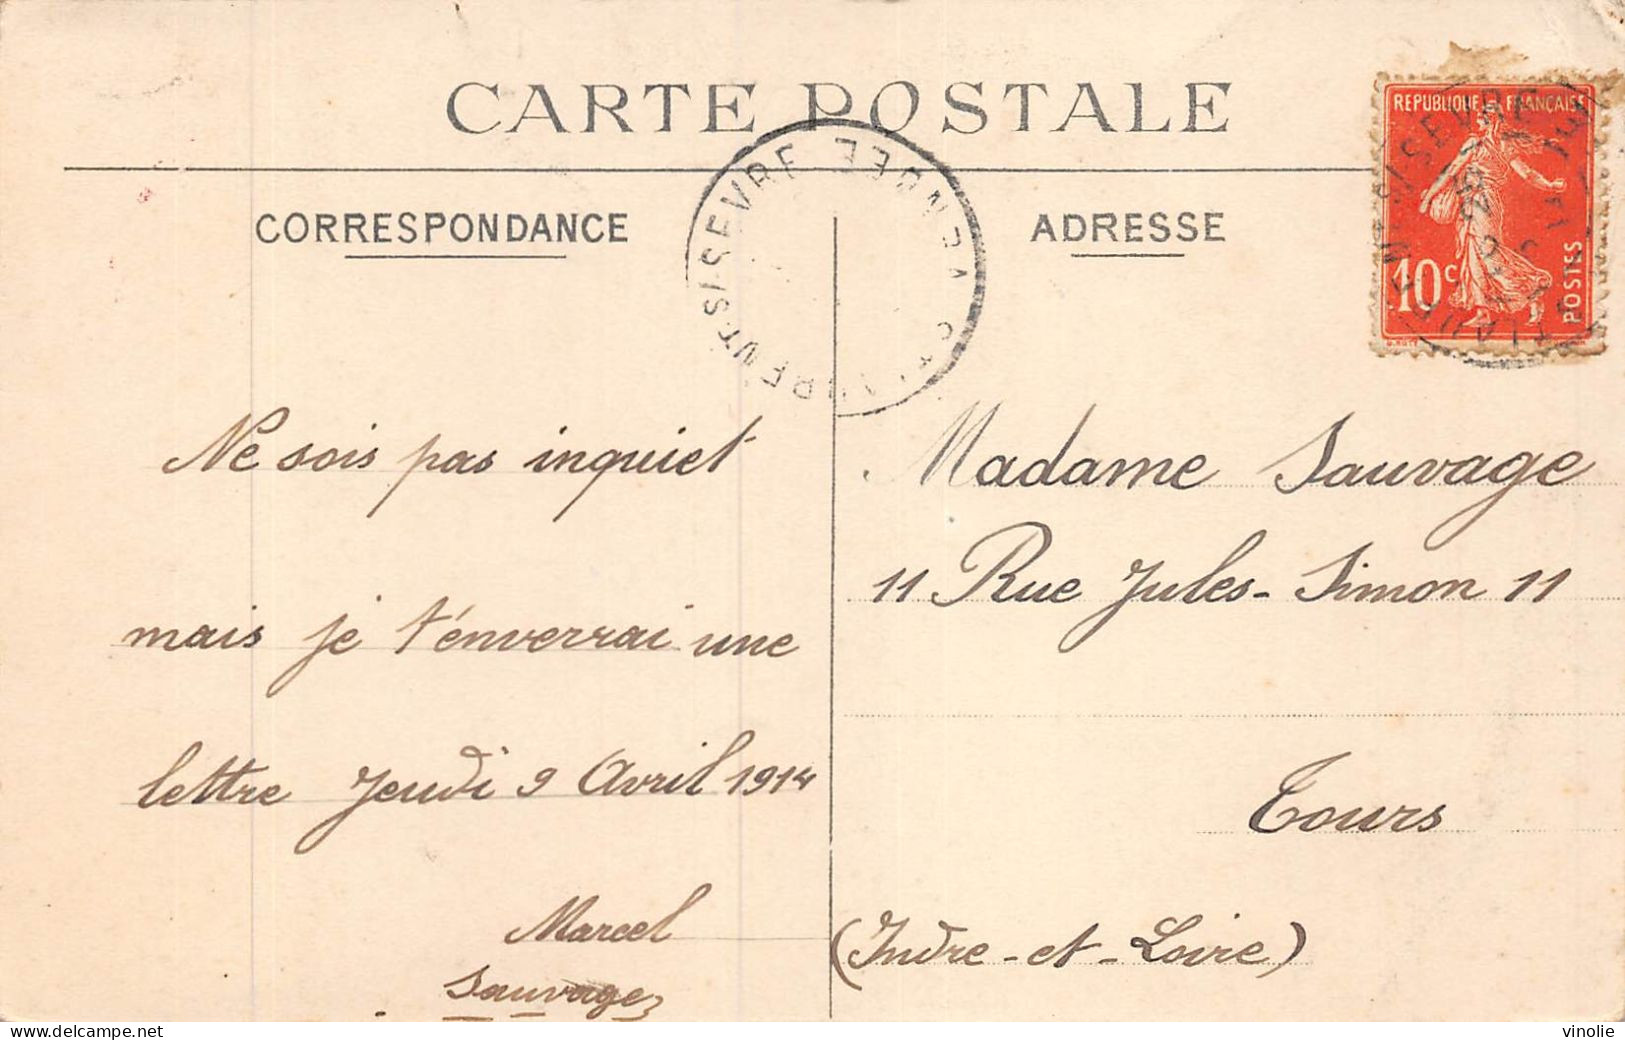 CARTE POSTALE
CORRESPONDANCE
ADRESSE
REPUBLIQUE FRANÇAISE
10c
POSTES
ST LAURENT-S/SEVRE VENDEE
Ne sois pas inquiet
mais je t'enverrai une
lettre Jeudi 9 Avril 1914
Marcel
Sauvage
Madame Sauvage
11 Rue Jules-Simon 11
Tours
(Indre-et-Loire)
vinolie